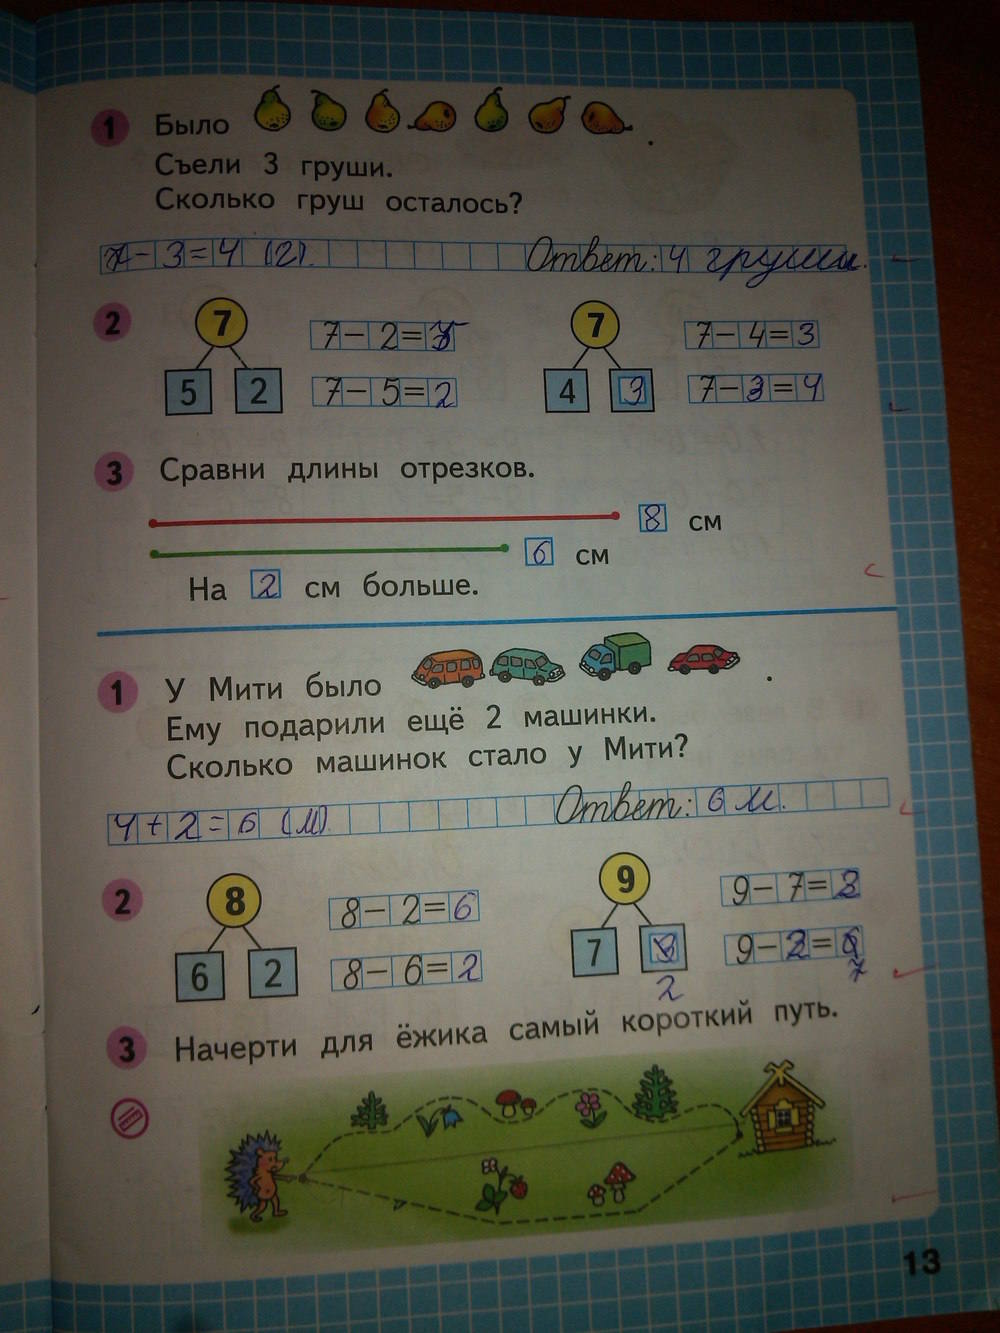 1 Было .
Съели 3 груши.
Сколько груш осталось?
7-3=4 (г). Ответ: 4 груши.
2 7 7-2=5 7 7-4=3
5 2 7-5=2 4 3 7-3=4
3 Сравни длины отрезков.
8 см
6 см
На 2 см больше.
1 У Мити было .
Ему подарили ещё 2 машинки.
Сколько машинок стало у Мити?
4+2=6 (м) Ответ: 6 м.
2 8 8-2=6 9 9-7=2
6 2 8-6=2 7 9-2=
2 7
3 Начерти для ёжика самый короткий путь.
13